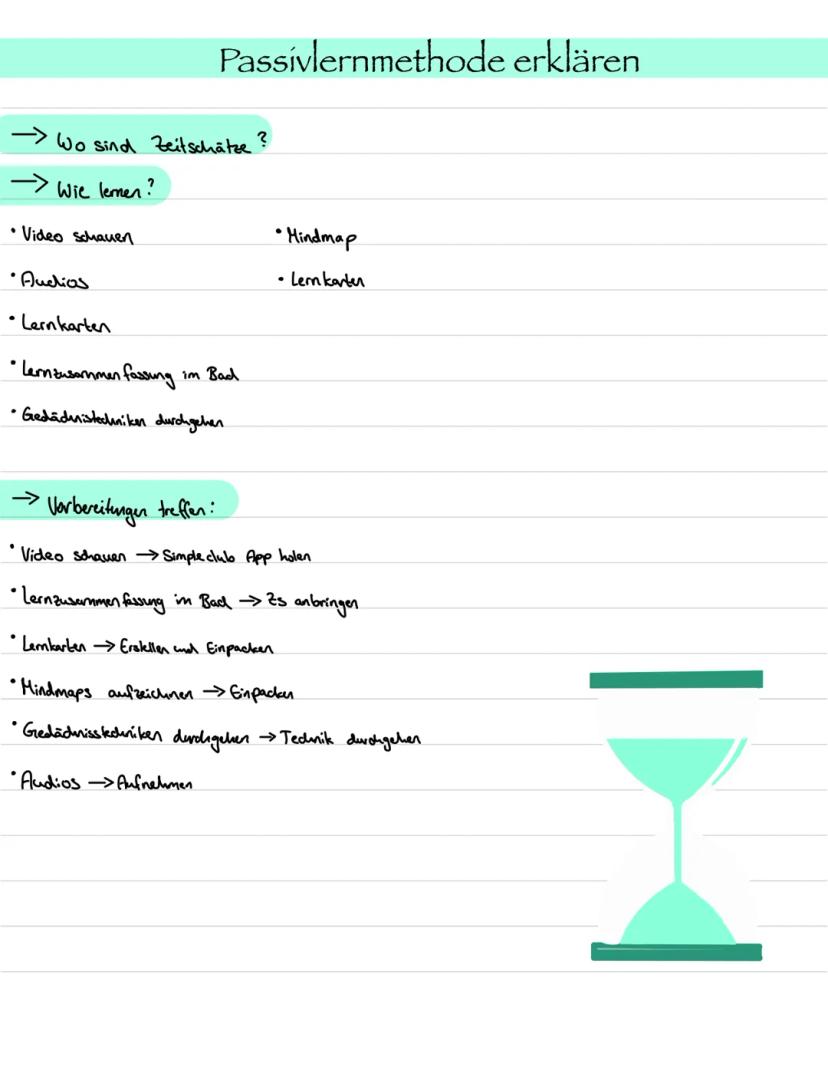 Passivlernmethode erklären
→ Wo sind Zeitschätze?
→ Wie lernen?
• Video schauen
• Audios
• Lernkarten
• Lernzusammenfassung im Bad
• Gedächnistechniken durchgehen
• Mindmap
• Lernkarten
→ Vorbereitungen treffen:
• Video schauen → Simpleclub App holen
• Lernzusammenfassung im Bad → Zs anbringen
• Lernkarten → Erstellen und Einpacken
• Mindmaps aufzeichnen → Einpacken
• Gedächnisstechniken durchgehen → Technik durchgehen
• Audios → Aufnehmen